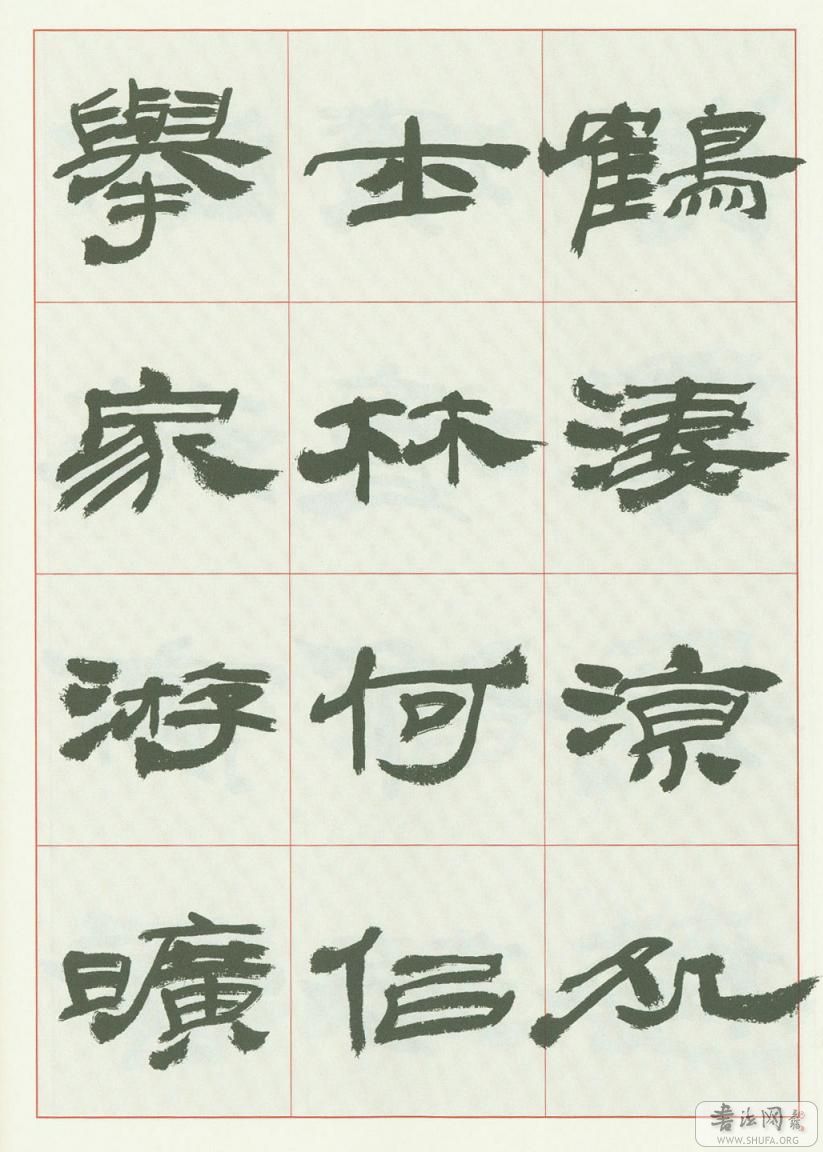 鶴淒涼処
士林何佀
擧家游曠
書法网
WWW.SHUFA.ORG